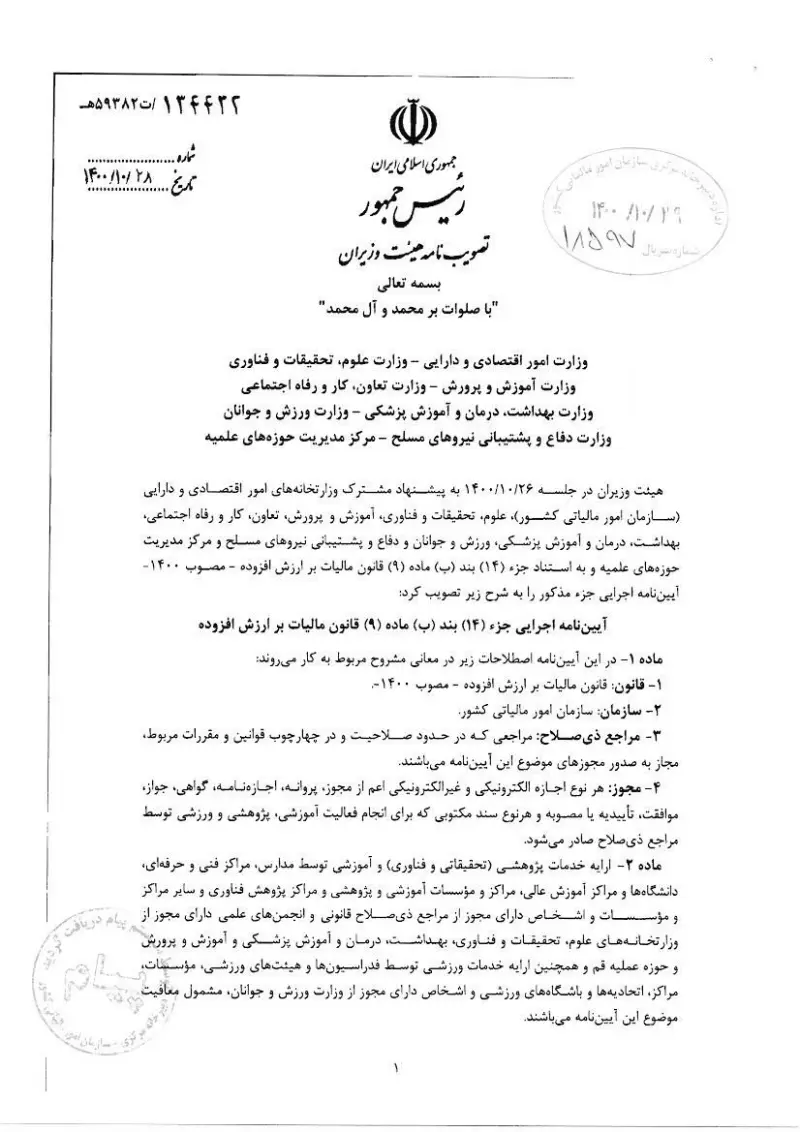 ۱۳۴۴۳۲ /ت۵۹۳۸۲هـ
شماره ......................
تاریخ ۱۴۰۰/۱۰/۲۸
جمهوری اسلامی ایران
رئیس جمهور
تصویب نامه هیئت وزیران
اداره دبیرخانه مرکزی سازمان امور مالیاتی کشور
۱۴۰۰/۱۰/۲۹
۱۸۵۹۷
شماره سریال
بسمه تعالی
"با صلوات بر محمد و آل محمد"
وزارت امور اقتصادی و دارایی – وزارت علوم، تحقیقات و فناوری
وزارت آموزش و پرورش – وزارت تعاون، کار و رفاه اجتماعی
وزارت بهداشت، درمان و آموزش پزشکی – وزارت ورزش و جوانان
وزارت دفاع و پشتیبانی نیروهای مسلح – مرکز مدیریت حوزه‌های علمیه
هیئت وزیران در جلسه ۱۴۰۰/۱۰/۲۶ به پیشنهاد مشترک وزارتخانه‌های امور اقتصادی و دارایی
(سازمان امور مالیاتی کشور)، علوم، تحقیقات و فناوری، آموزش و پرورش، تعاون، کار و رفاه اجتماعی،
بهداشت، درمان و آموزش پزشکی، ورزش و جوانان و دفاع و پشتیبانی نیروهای مسلح و مرکز مدیریت
حوزه‌های علمیه و به استناد جزء (۱۴) بند (ب) ماده (۹) قانون مالیات بر ارزش افزوده – مصوب ۱۴۰۰-
آیین‌نامه اجرایی جزء مذکور را به شرح زیر تصویب کرد:
آیین‌نامه اجرایی جزء (۱۴) بند (ب) ماده (۹) قانون مالیات بر ارزش افزوده
ماده ۱- در این آیین‌نامه اصطلاحات زیر در معانی مشروح مربوط به کار می‌روند:
۱- قانون: قانون مالیات بر ارزش افزوده – مصوب ۱۴۰۰-.
۲- سازمان: سازمان امور مالیاتی کشور.
۳- مراجع ذی‌صلاح: مراجعی که در حدود صلاحیت و در چهارچوب قوانین و مقررات مربوط،
مجاز به صدور مجوزهای موضوع این آیین‌نامه می‌باشند.
۴- مجوز: هر نوع اجازه الکترونیکی و غیرالکترونیکی اعم از مجوز، پروانه، اجازه‌نامه، گواهی، جواز،
موافقت، تأییدیه یا مصوبه و هرنوع سند مکتوبی که برای انجام فعالیت آموزشی، پژوهشی و ورزشی توسط
مراجع ذی‌صلاح صادر می‌شود.
ماده ۲- ارایه خدمات پژوهشی (تحقیقاتی و فناوری) و آموزشی توسط مدارس، مراکز فنی و حرفه‌ای،
دانشگاه‌ها و مراکز آموزش عالی، مراکز و مؤسسات آموزشی و پژوهشی و مراکز پژوهش فناوری و سایر مراکز
و مؤسسات و اشخاص دارای مجوز از مراجع ذی‌صلاح قانونی و انجمن‌های علمی دارای مجوز از
وزارتخانه‌های علوم، تحقیقات و فناوری، بهداشت، درمان و آموزش پزشکی و آموزش و پرورش
و حوزه عملیه قم و همچنین ارایه خدمات ورزشی توسط فدراسیون‌ها و هیئت‌های ورزشی، مؤسسات،
مراکز، اتحادیه‌ها و باشگاه‌های ورزشی و اشخاص دارای مجوز از وزارت ورزش و جوانان، مشمول معافیت
موضوع این آیین‌نامه می‌باشند.
پیام دریافت گردید
مرکزی - سازمان امور
۱